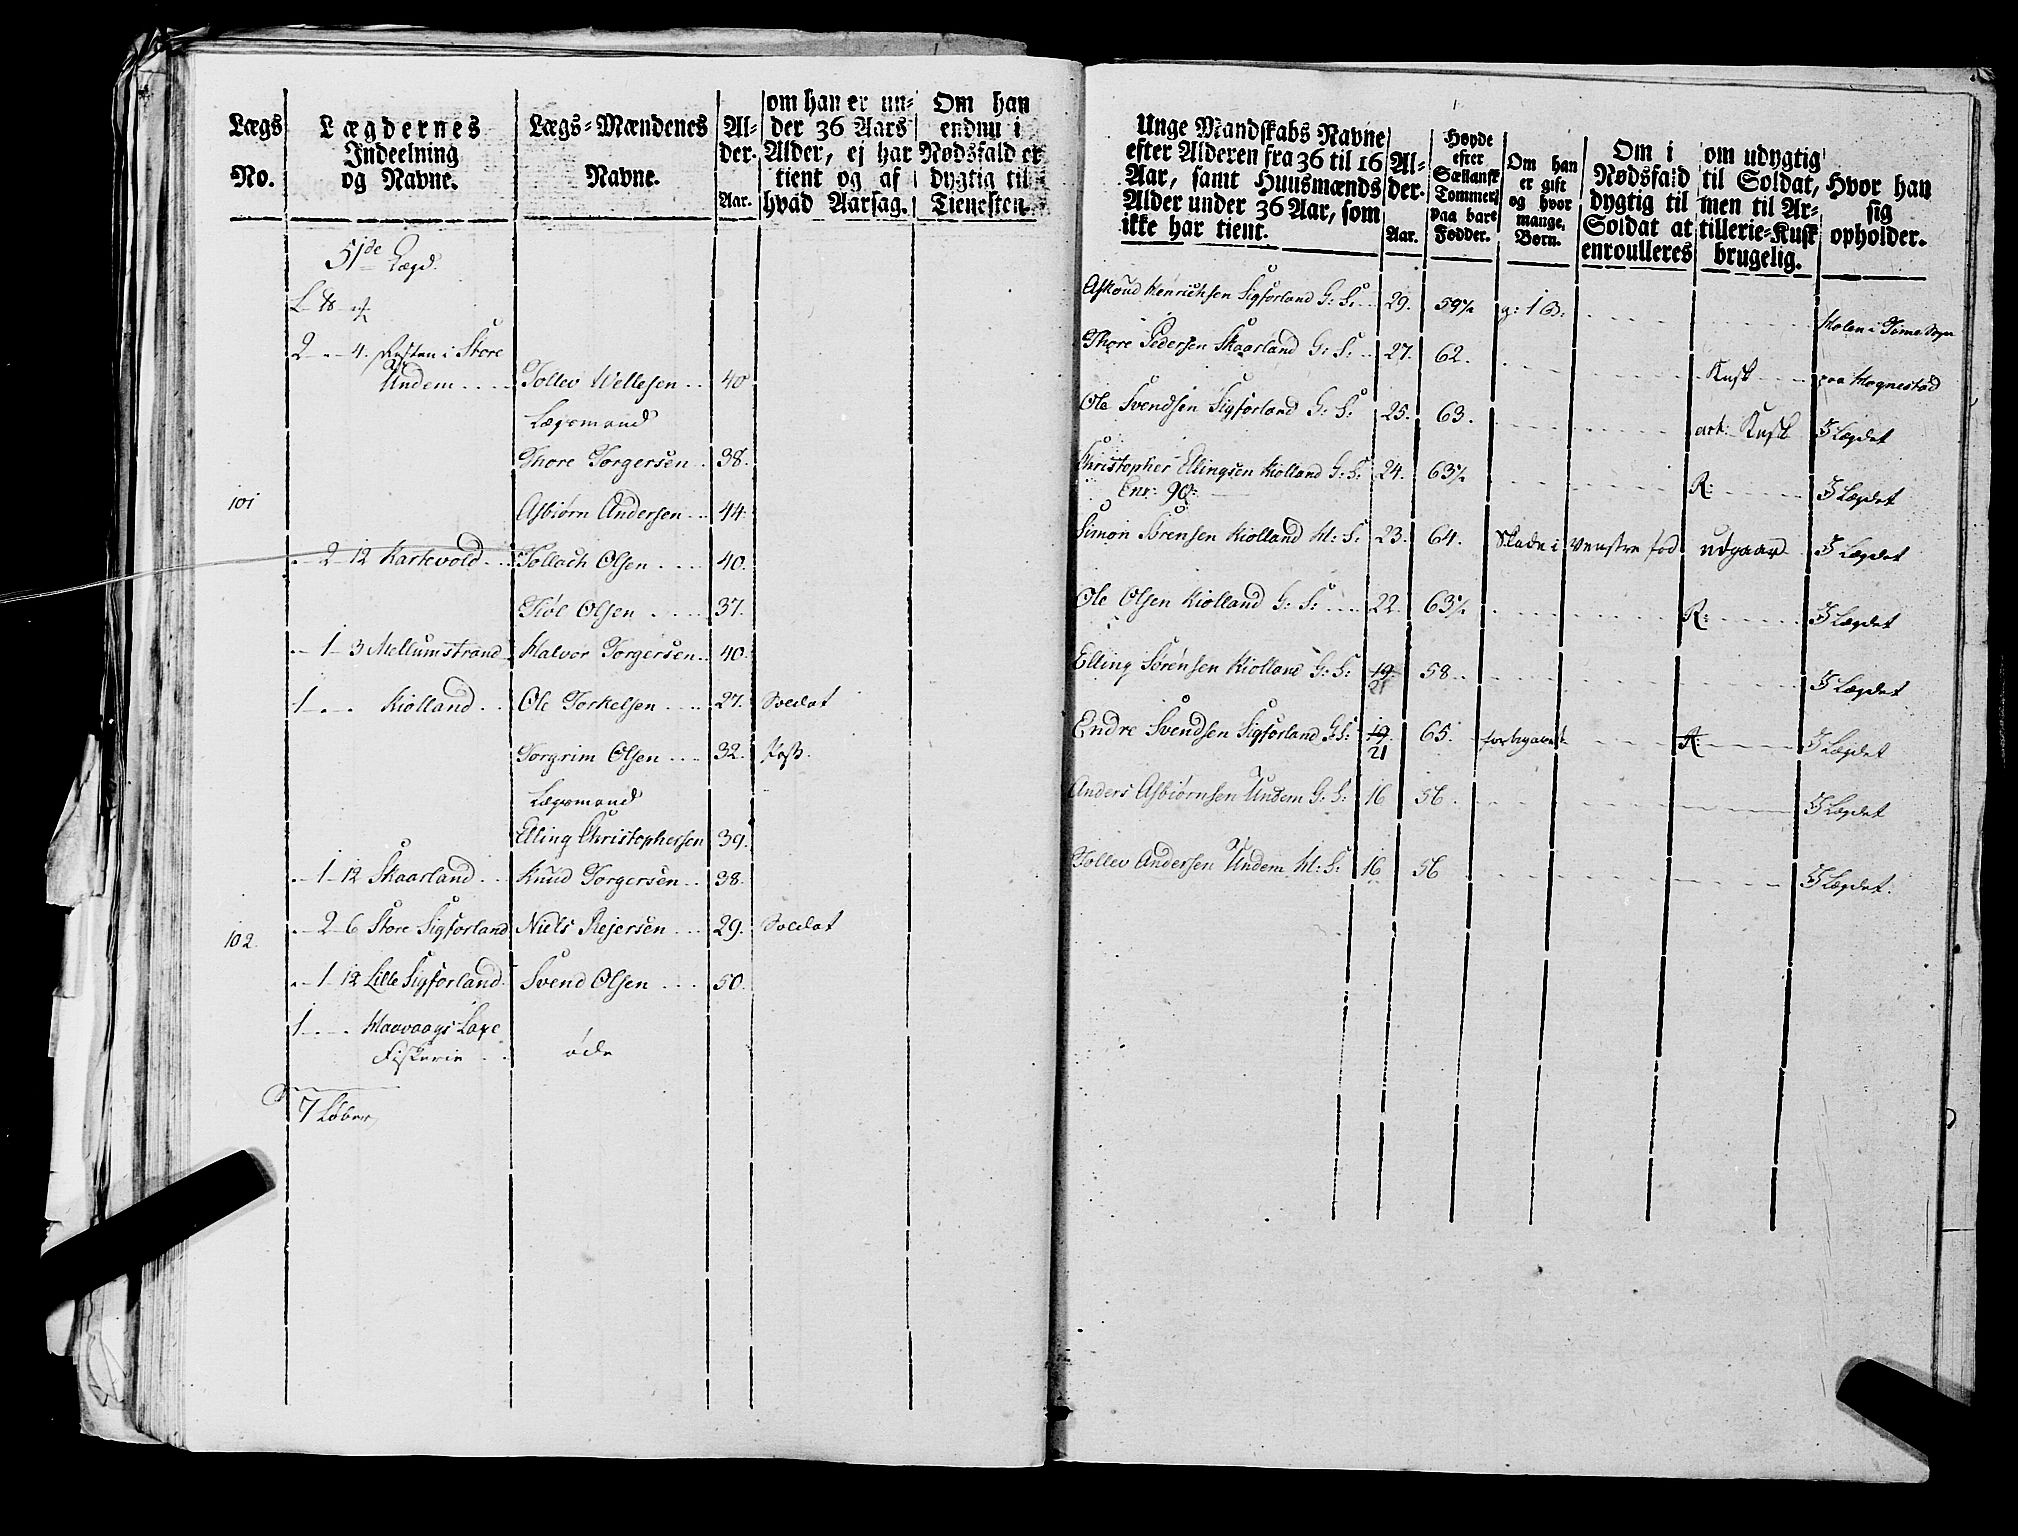 Lægs No.
Lægdernes Indeelning og Navne.
Lægs-Mændenes Navne.
Al-der. Aar.
om han er un-der 36 Aars Alder, ej har tient og af hvad Aarsag.
Om han endnu i Nødsfald er dygtig til Tienesten.
51de Lægd.
2 - . - 4. i Store
Undem . . . . Tollev Wellesen . . 40
Lægsmand
Thore Torgersen . . 38.
101
Asbiørn Andersen . . 44.
. - 2 - 12 Karkvold . . Tollach Olsen . . . . 40.
Olsen . . . . 37.
. - 1 - 3 Mellumstrand Halvor Torgersen . . 40.
1 - . - . Kiolland . . Ole Torkelsen . . . . 27. Soldat
Torgrim Olsen . . . 32.
Lægsmand
Elling Christophersen 39.
. - 1 - 12 Skaarland . . Knud Torgersen . . 38.
102.
. - 2 - 6 Store Sigforland Niels Rejersen . . . 29. Soldat
. - 1 - 12 Lille Sigforland Svend Olsen . . . 50.
1 - . - . Haavaags Laxe
Fiskerie . . øde
7 Løber
Unge Mandskabs Navne efter Alderen fra 36 til 16 Aar, samt Huusmænds Alder under 36 Aar, som ikke har tient.
Al-der. Aar.
Høyde efter Sællansk Tommer, paa bare Fødder.
Om han er gift og hvor mange Børn.
Om i Nødsfald dygtig til Soldat at enroulleres
om udygtig til Soldat, men til Ar-tillerie-Kusk brugelig.
Hvor han sig opholder.
Henrichsen Sigforland G: S: . . 29. 59½ g: 1 B: Holen i Time Sogn
Thore Pedersen Skaarland G: S: . . 27. 62. Kusk paa Hognestad
Ole Svendsen Sigforland G: S: 25. 63. art: Kusk I Lægdet
Christopher Ellingsen Kiolland G: S: 24. 63½ R: I Lægdet
Enr: 90:
Simon Sørensen Kiolland H: S: 23. 64. Skade i venstre fod udgaar I Lægdet
Ole Olsen Kiolland G: S: . . . 22. 63½ R: I Lægdet
Elling Sørensen Kiolland G: S: 19. 58. I Lægdet
21
Endre Svendsen Sigforland G: S: 19. 65. R: I Lægdet
21
Anders Asbiørnsen Undem G: S: 16 56. I Lægdet
Tollev Andersen Undem H: S: 16 56 I Lægdet.